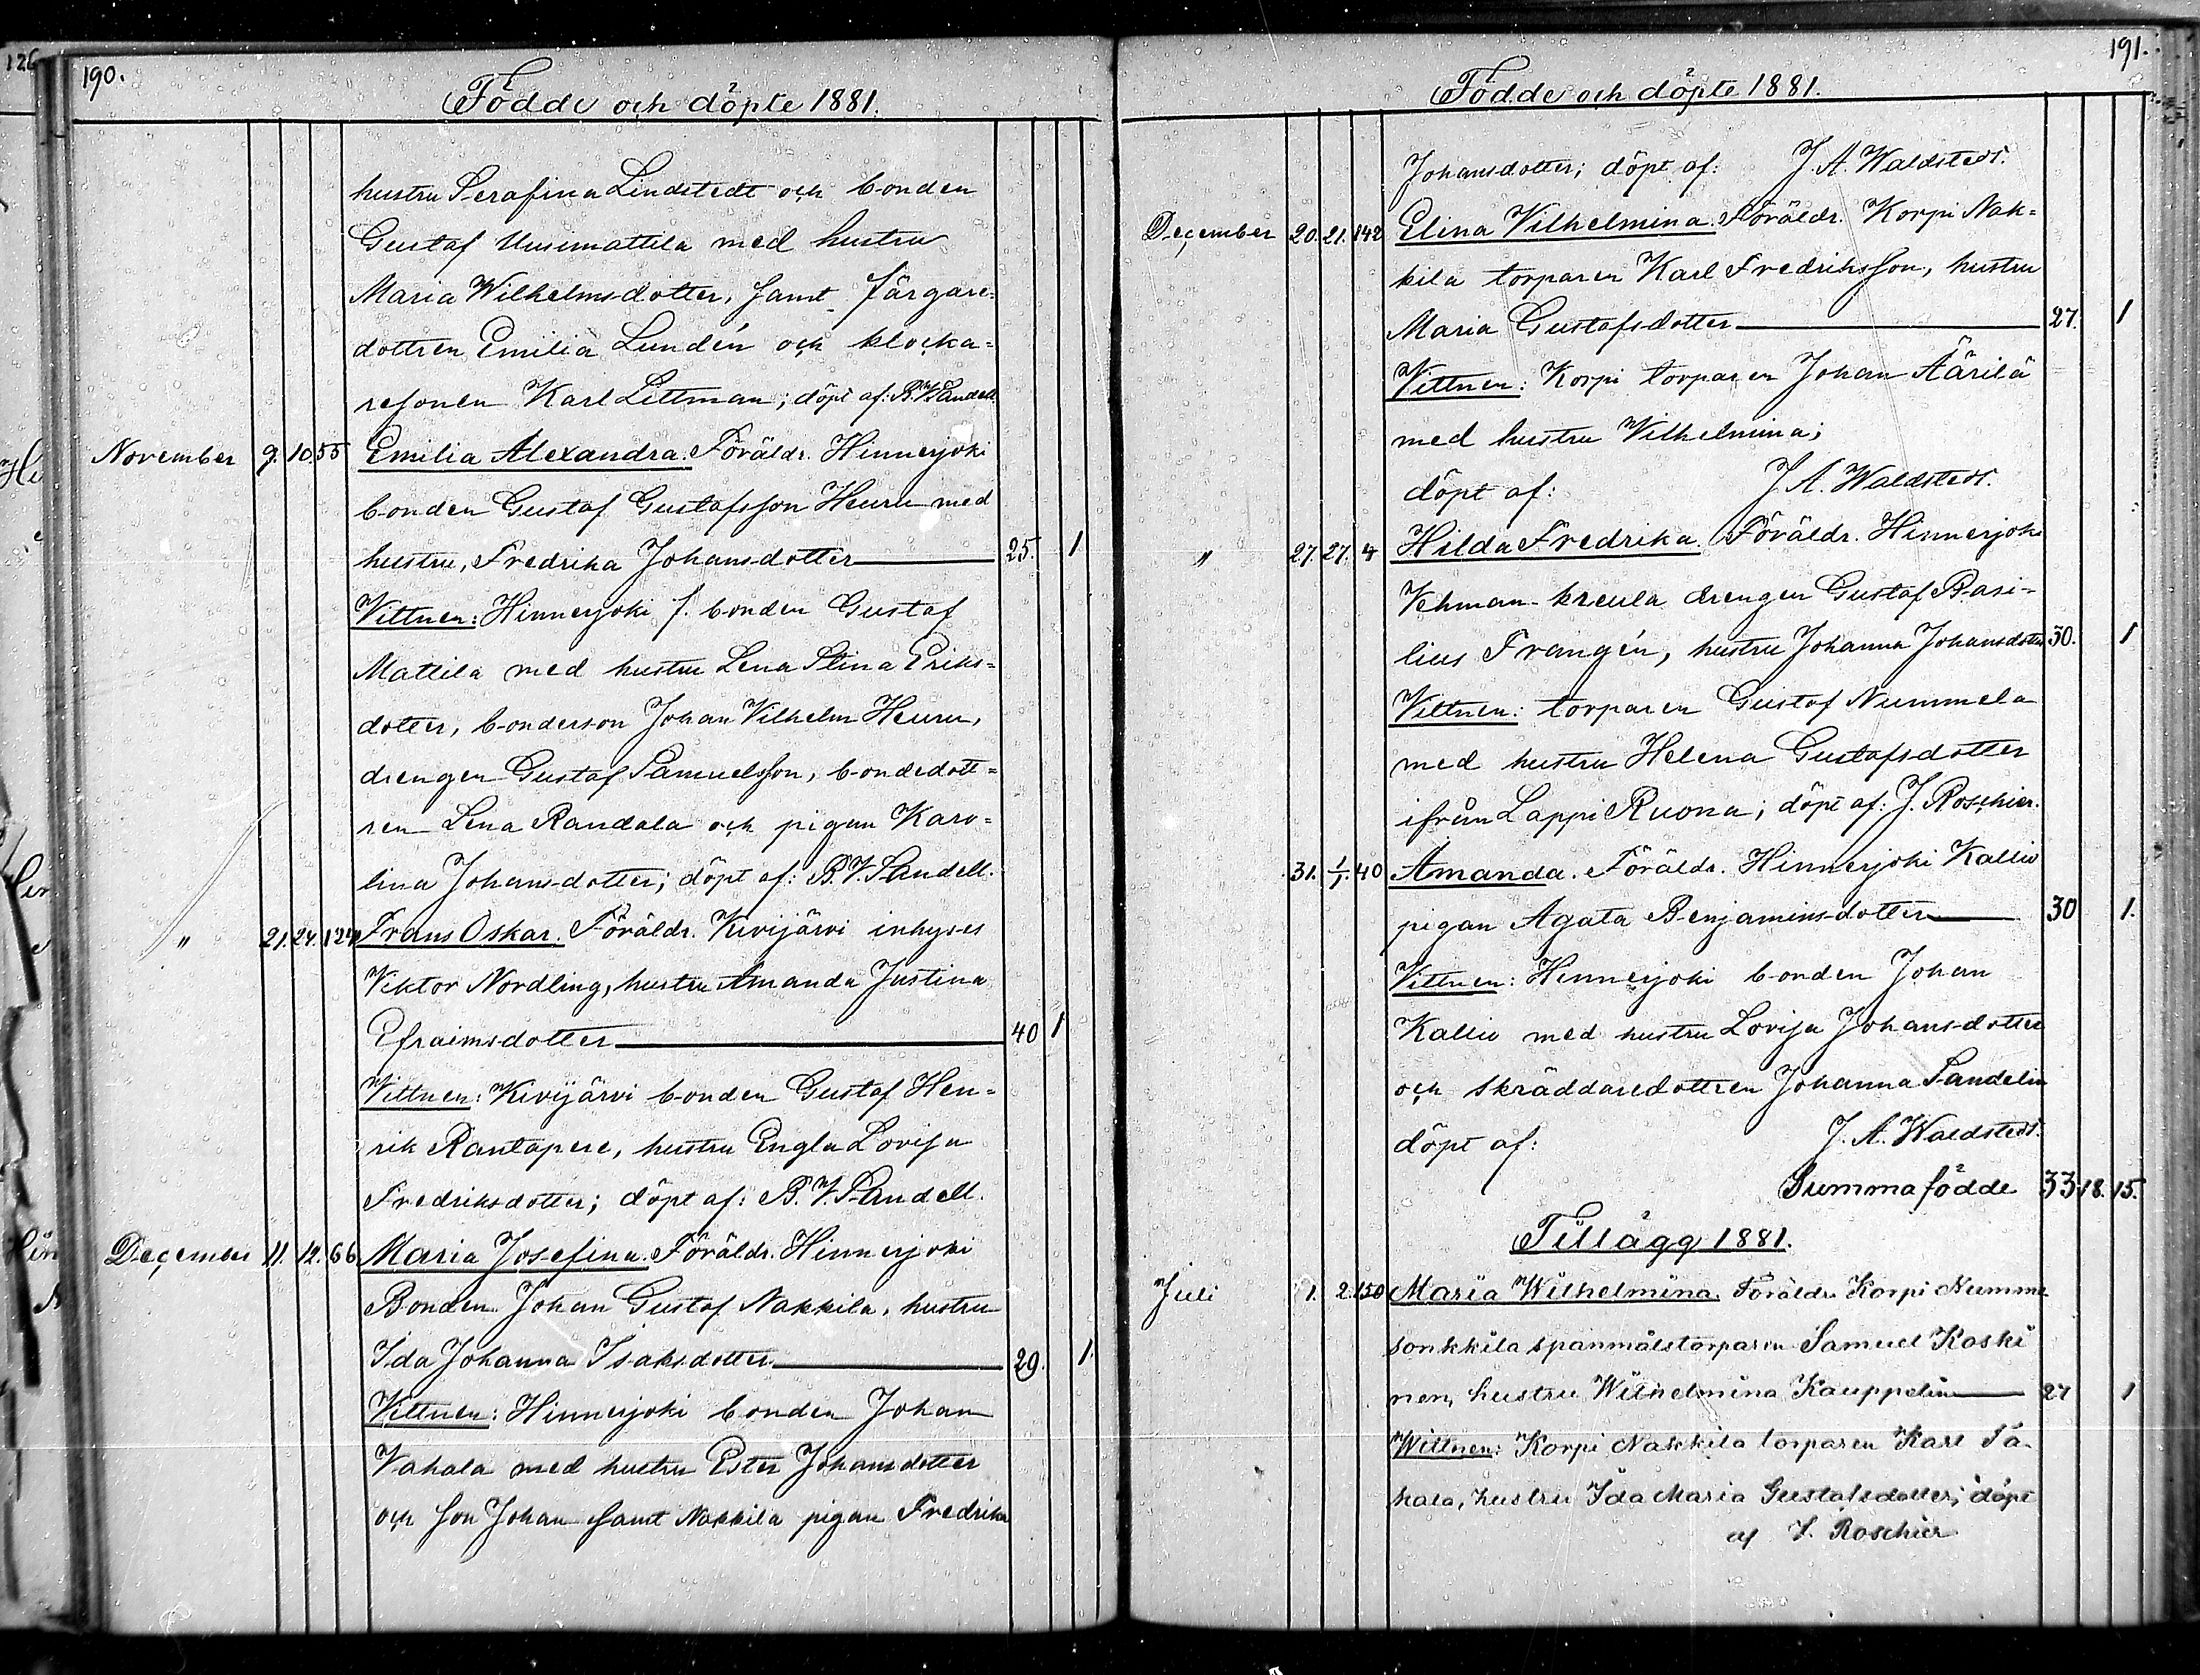 190.
Födde och döpte 1881.
hustru Serafina Lindstedt och bonden
Gustaf Uusimattila med hustru
Maria Wilhelmsdotter, samt färgare-
dottren Emilia Lundén och klocka-
resonen Karl Littman; döpt af: B.V. Sandell.
November 9. 10. 55 Emilia Alexandra. Föräldr. Hinnerjoki
bonden Gustaf Gustafsson Heuru med
hustru, Fredrika Johansdotter 25. 1
Vittnen: Hinnerjoki f. bonden Gustaf
Mattila med hustru Lena Stina Eriks-
dotter, bonderson Johan Vilhelm Heuru,
drengen Gustaf Samuelsson, bondedott-
ren Lina Randala och pigan Karo-
lina Johansdotter; döpt af: B.V. Sandell.
" 21. 24. 124 Frans Oskar. Föräldr. Kivijärvi inhyses
Viktor Nordling, hustru Amanda Justina
Efraimsdotter 40 1
Vittnen: Kivijärvi bonden Gustaf Hen-
rik Rantapere, hustru Engla Lovisa
Fredriksdotter; döpt af: B.V. Sandell.
December 11. 12. 66 Maria Josefina. Föräldr. Hinnerjoki
Bonden Johan Gustaf Nakkila, hustru
Ida Johanna Isaksdotter 29. 1.
Vittnen: Hinnerjoki bonden Johan
Vahala med hustru Ester Johansdotter
och son Johan samt Nakkila pigan Fredrika
191.
Födde och döpte 1881.
Johansdotter; döpt af: J. A. Waldstedt.
December 20. 21. 142 Elina Vilhelmina. Föräldr. Korpi Nak-
kila torparen Karl Fredriksson, hustru
Maria Gustafsdotter 27. 1
Vittnen: Korpi torparen Johan Äärilä
med hustru Vilhelmina;
döpt af: J. A. Waldstedt.
" 27. 27. 4 Hilda Fredrika. Föräldr. Hinnerjoki
Vehman-kreula drengen Gustaf Basi-
lius Frangén, hustru Johanna Johansdotter 30. 1
Vittnen: torparen Gustaf Nummela
med hustru Helena Gustafsdotter
ifrån Lappi Ruona; döpt af: J. Roschier.
31. 1/1. 40 Amanda. Föräldr. Hinnerjoki Kallio
pigan Agata Benjaminsdotter 30 1.
Vittnen: Hinnerjoki bonden Johan
Kallio med hustru Lovisa Johansdotter
och skräddaredottren Johanna Sandelin
döpt af: J. A. Waldstedt.
Summa födde 33. 18. 15.
Tillägg 1881.
Juli 1. 2. 150 Maria Wilhelmina. Föräldr. Korpi Numme
sonkkila spanmålstorparen Samuel Koski
nen, hustru Wilhelmina Kauppelin 27 1
Wittnen: Korpi Nakkila torparen Karl Ta-
hala, hustru Ida Maria Gustafsdotter; döpt
af J. Roschier